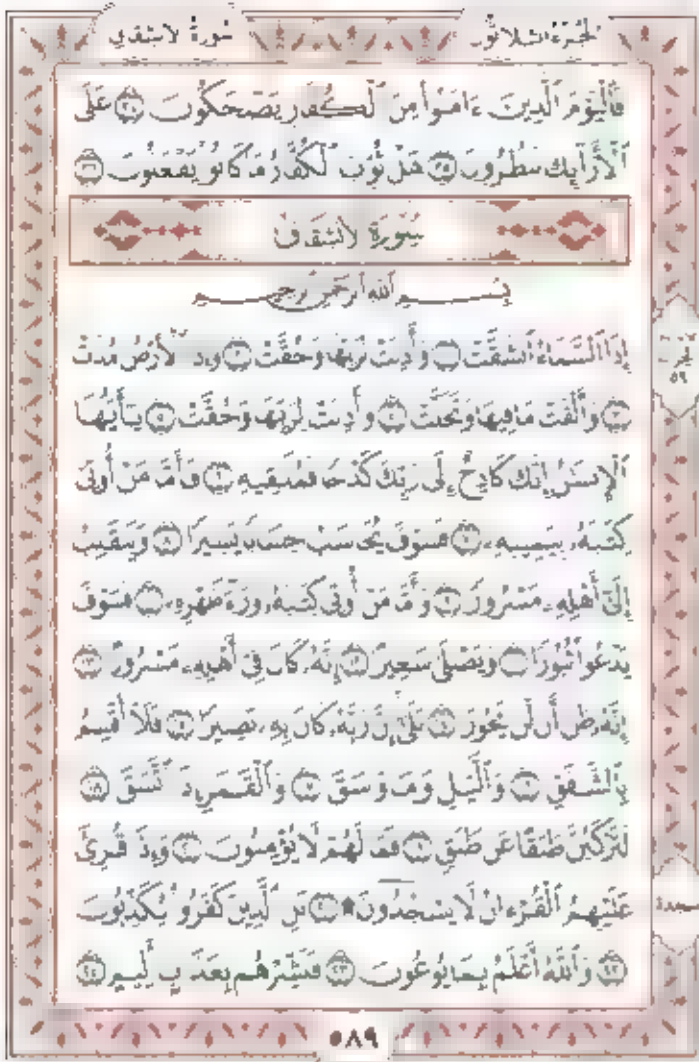 سورة الانشقاق
الجزء الثلاثون
فَالْيَوْمَ الَّذِينَ ءَامَنُوا مِنَ الْكُفَّارِ يَضْحَكُونَ ٣٤ عَلَى
الْأَرَائِكِ يَنظُرُونَ ٣٥ هَلْ ثُوِّبَ الْكُفَّارُ مَا كَانُوا يَفْعَلُونَ ٣٦
سُورَةُ الانشِقَاقِ
بِسْمِ اللَّهِ الرَّحْمَٰنِ الرَّحِيمِ
إِذَا السَّمَاءُ انشَقَّتْ ١ وَأَذِنَتْ لِرَبِّهَا وَحُقَّتْ ٢ وَإِذَا الْأَرْضُ مُدَّتْ
٣ وَأَلْقَتْ مَا فِيهَا وَتَخَلَّتْ ٤ وَأَذِنَتْ لِرَبِّهَا وَحُقَّتْ ٥ يَٰأَيُّهَا
الْإِنسَٰنُ إِنَّكَ كَادِحٌ إِلَىٰ رَبِّكَ كَدْحًا فَمُلَٰقِيهِ ٦ فَأَمَّا مَنْ أُوتِيَ
كِتَٰبَهُۥ بِيَمِينِهِۦ ٧ فَسَوْفَ يُحَاسَبُ حِسَابًا يَسِيرًا ٨ وَيَنقَلِبُ
إِلَىٰ أَهْلِهِۦ مَسْرُورًا ٩ وَأَمَّا مَنْ أُوتِيَ كِتَٰبَهُۥ وَرَاءَ ظَهْرِهِۦ ١٠ فَسَوْفَ
يَدْعُوا ثُبُورًا ١١ وَيَصْلَىٰ سَعِيرًا ١٢ إِنَّهُۥ كَانَ فِي أَهْلِهِۦ مَسْرُورًا ١٣
إِنَّهُۥ ظَنَّ أَن لَّن يَحُورَ ١٤ بَلَىٰ إِنَّ رَبَّهُۥ كَانَ بِهِۦ بَصِيرًا ١٥ فَلَا أُقْسِمُ
بِالشَّفَقِ ١٦ وَالَّيْلِ وَمَا وَسَقَ ١٧ وَالْقَمَرِ إِذَا اتَّسَقَ ١٨
لَتَرْكَبُنَّ طَبَقًا عَن طَبَقٍ ١٩ فَمَا لَهُمْ لَا يُؤْمِنُونَ ٢٠ وَإِذَا قُرِئَ
عَلَيْهِمُ الْقُرْءَانُ لَا يَسْجُدُونَ ۩ ٢١ بَلِ الَّذِينَ كَفَرُوا يُكَذِّبُونَ
٢٢ وَاللَّهُ أَعْلَمُ بِمَا يُوعُونَ ٢٣ فَبَشِّرْهُم بِعَذَابٍ أَلِيمٍ ٢٤
الحزب
٥٩
سجدة
٥٨٩